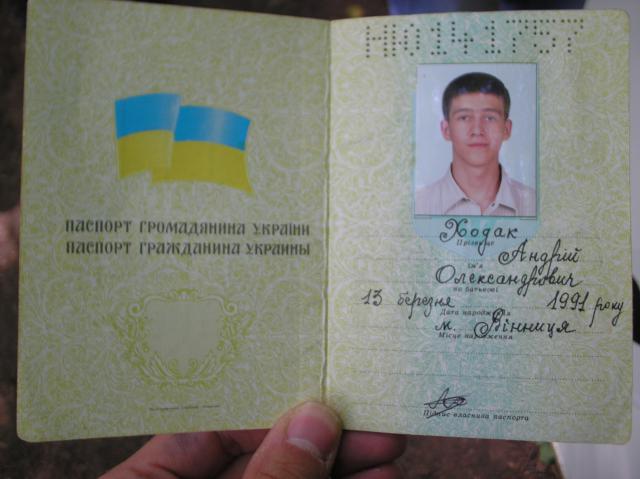 ПАСПОРТ ГРОМАДЯНИНА УКРАЇНИ
ПАСПОРТ ГРАЖДАНИНА УКРАИНЫ
НЮ141757
Ходак
Прізвище
Андрій
Ім'я
Олександрович
по батькові
13 березня 1991 року
Дата народження
м. Вінниця
Місце народження
Підпис власника паспорта